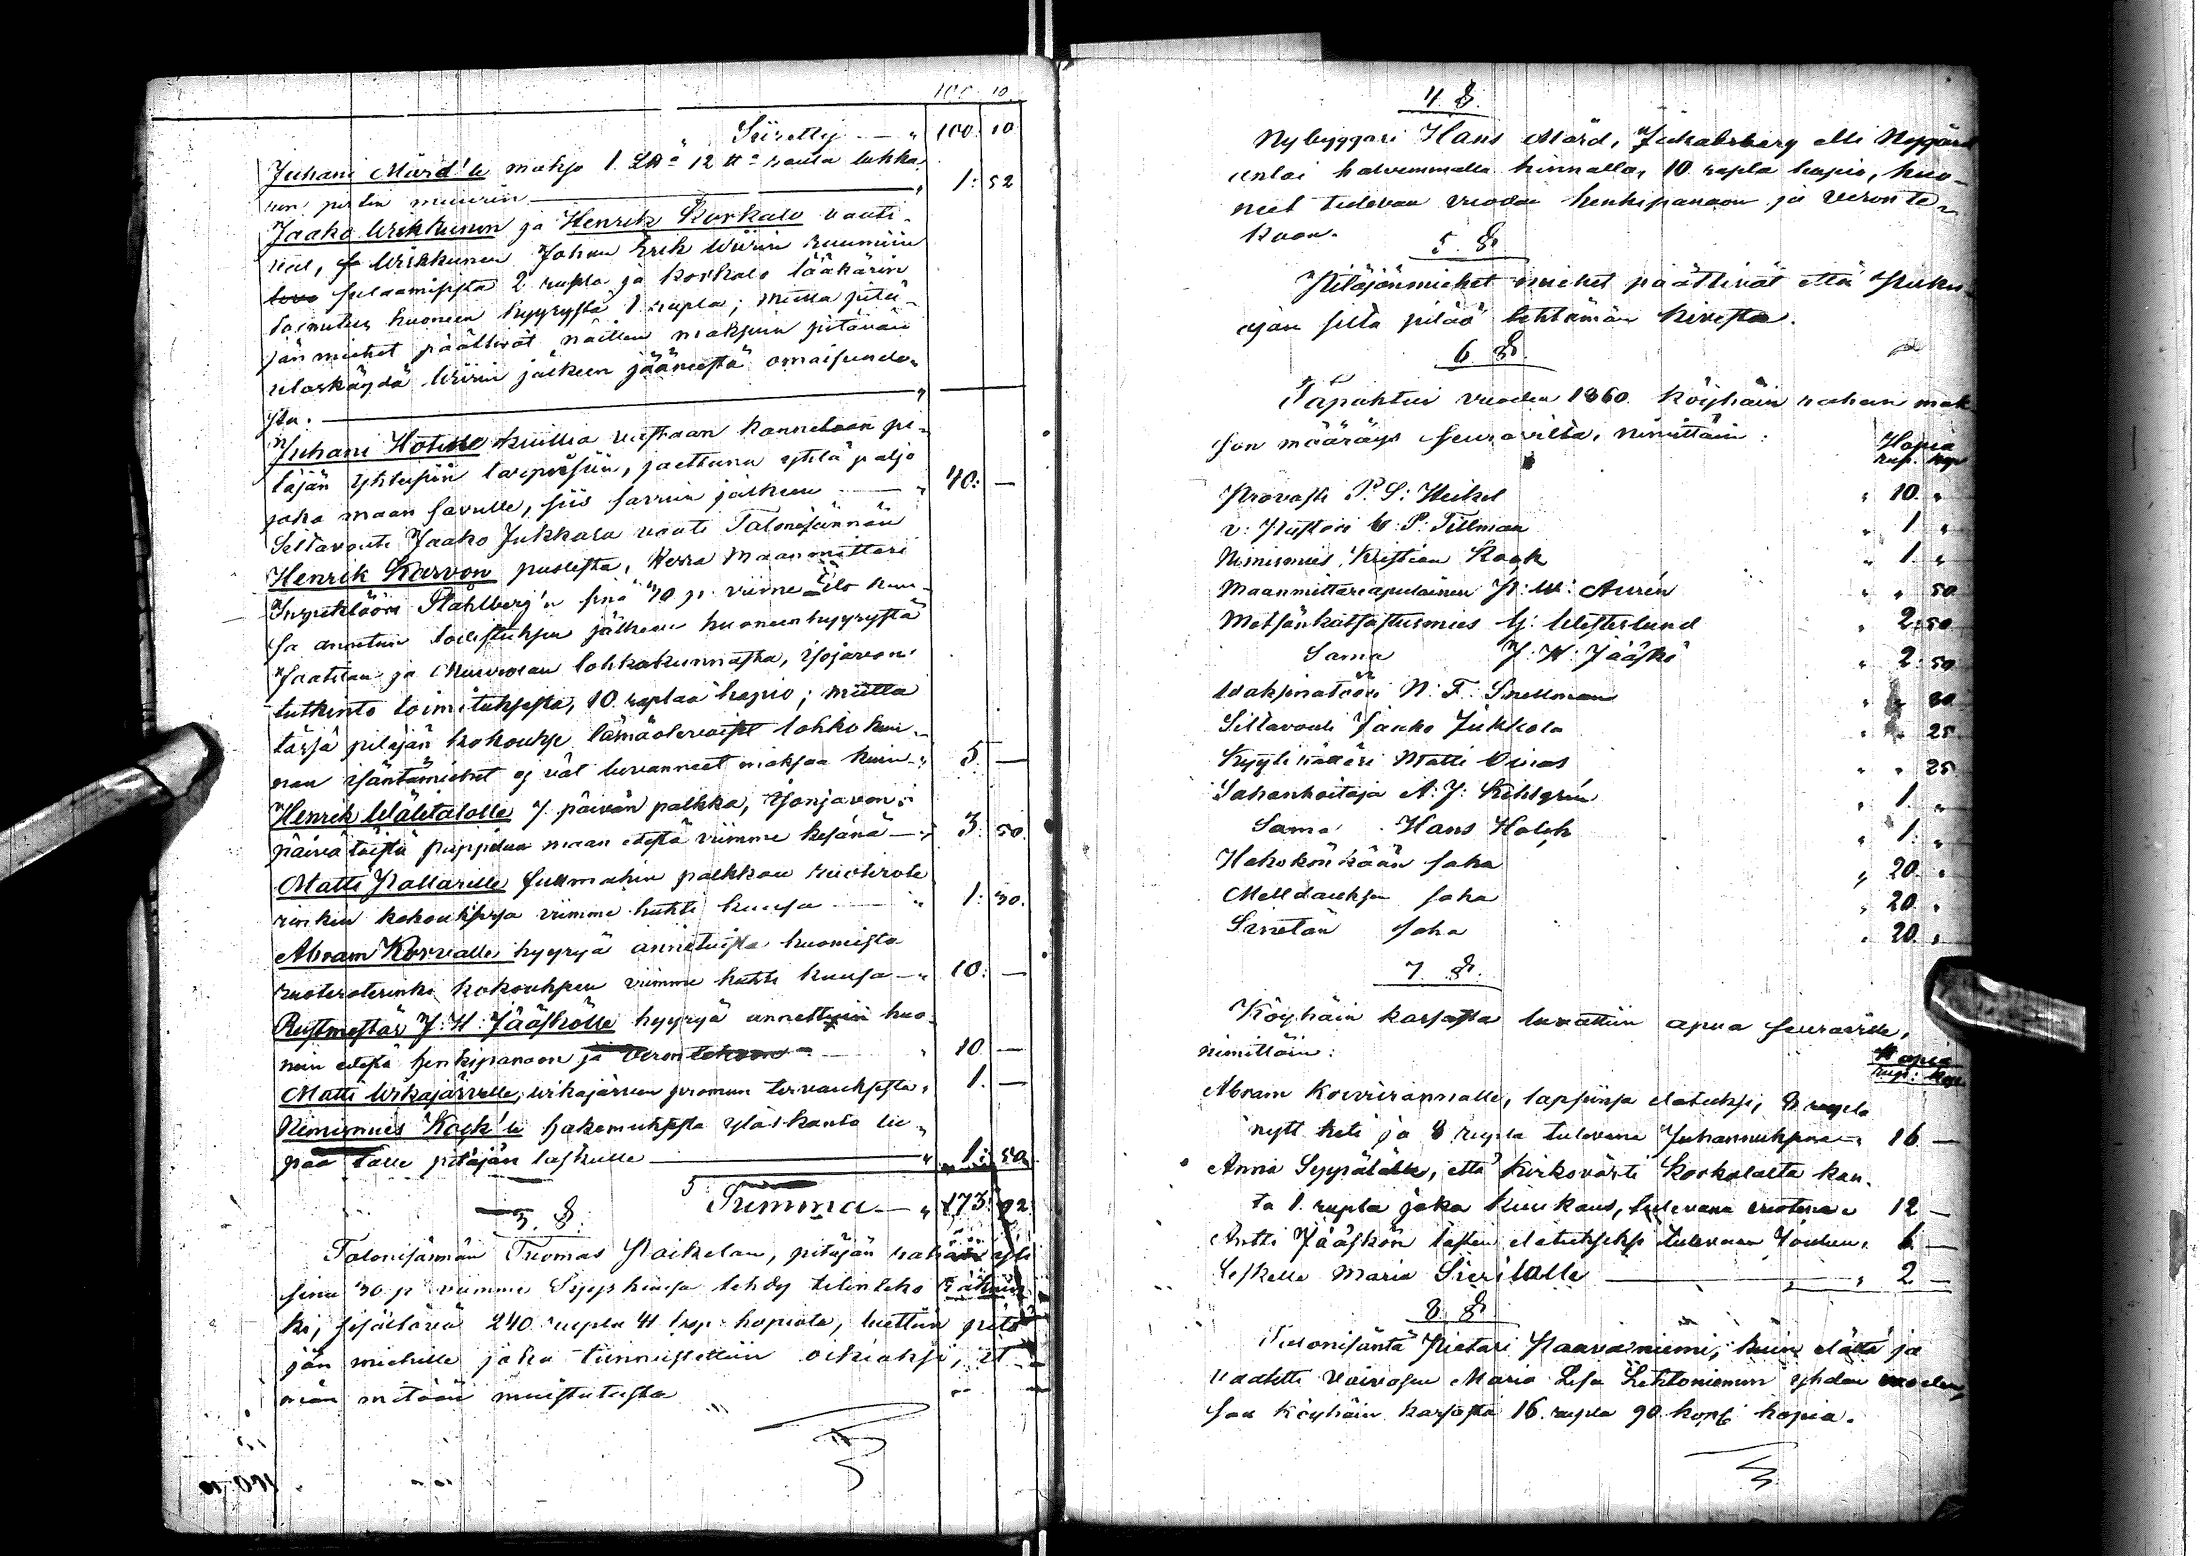 100 10
Siiretty — " 100. 10
Juhani Mård'le makso 1. LH:a 12 H:a rauta luhka
sen pirtin muurin — " 1: 52
Jaako Wikkunen ja Henrik Korkalo vaati-
vat, Wikkunen Johan Erik Wiirin ruumiin
sulaamisesta 2 rupla ja Korkalo lääkärin
toimitus huoneen hyyrystä 1 rupla; mutta pitä-
jän miehet päättivät näitten maksuin pitävän
uloskäydä Wiirin jälkeen jääneestä omaisuude-
sta. — "
Juhani Hotille kuilla vastaan kannetaan pi-
täjän yhteisiin tarpeisiin, jaettuna yhtä paljo
joka maan savulle, siis savuin jälkeen — " 40: —
Siltavouti Jaako Jukkala vaati Talonisännän
Henrik Karvon puolesta, Herra Maanmittari
Inspehtööri Ståhlberg'n sinä 10 p. viime Elo kuu-
sa annetun todistuksen jälkeen huoneen hyyrystä
Jaatilan ja Muurolan lohkokunnasta, Isojaon
tutkinto toimituksesta, 10 ruplaa hopio; mutta
tässä pitäjän kokoukse läsnäolevaiset lohkokun-
nan isäntämiehet ej vät luvanneet maksaa kuin " 5. —
Henrik Wälitalolle 7. päivän palkka, Isonjaon
päivätöistä pappilan maan edestä viimme kesänä — " 3. 50.
Matti Pallarille fullmahin palkkaa ruoterote
rinkin kokouksesa viimme huhti kuusa — " 1: 50.
Abram Korvalle hyyryä annetuista huoneista
ruoteroterinki kokouksen viimme huhti kuusa — " 10: —
Rustmestar J: H: Jääskölle hyyryä annettuin huo-
nein edestä henkipanoon ja Veron tekoon — " 10 —
Matti Wikajärvelle, Wikajärven promun tervauksesta " 1. —
Nimismies Kock'le hakemuksesta yläskanto lu-
paa talle pitäjän laskulle — " 1: 50
Summa — " 173: 92
3. §.
Talonisännän Tuomas Paikelan, pitäjän
sinä 30 p viimme Syyskuusa tehdy tilinteko
ki, sisältävä 240 rupla 41 kop: hopiata, luettiin pitä
jän miehille joka tunnustettiin oikiaksi, il
man mitään muistutusta
100. 10
4. §.
Nybyggari Hans Mård, Jukabsberg elli Nygård
antoi halvemmalla hinnalla, 10 rupla hopio, huo-
neet tulevan vuoden henkipanoon ja veron te-
koon.
5. §.
Pitäjänmiehet miehet päättivät että
ojan silta pitää tehtämän kivestä.
6 §.
Tapahtui vuoden 1860 köyhäin rahan mak
son määräys seuravilta, nimittäin: Hopia
rup. kop
Provasti P. S: Heikel " 10. "
v: Pastori C: P: Tillman " 1. "
Nimismies Kristian Kock " 1. "
Maanmittariapulainen P: W: Aurén " " 50
Metsänkatsastusmies G: Westerlund " 2: 50
Sama J: H: Jääskö " 2: 50
Waksinatööri N. F. Snellman " " 30
Siltavouti Jaako Jukkola " " 25
Kyyti rättäri Matti Oinas " " 25
Sahanhoitaja A: J: Kihlgrén " 1. "
Sama Hans Holck " 1. "
Hakokönkään saha " 20. "
Melldauksen saha " 20. "
Sinetän saha " 20. "
7 §.
Köyhäin kassasta luvattiin apua seuraville,
nimittäin: Hopia
rupl: kop
Abram Koivirannalle, lapsinsa elatuksi, 8 rupla
nytt heti ja 8 rupla tulevana Juhannuksena " 16 —
Anna Syypälälle, että Kirkovärti Korkalolta kan-
ta 1. rupla joka kuukaus, tulevana vuotena " 12 —
Antti Jääskön lasten elatuksksi tulevaan Jouluun " 6 —
Leskelle Maria Sierilälle — " 2 —
8 §.
Talonisäntä Pietari Paavalniemi, kuin elätti ja
vaatetti vaivasen Maria Lisa Lehtoniemen yhden vuoden,
saa köyhäin kassasta 16. rupla 90. kop: hopia.